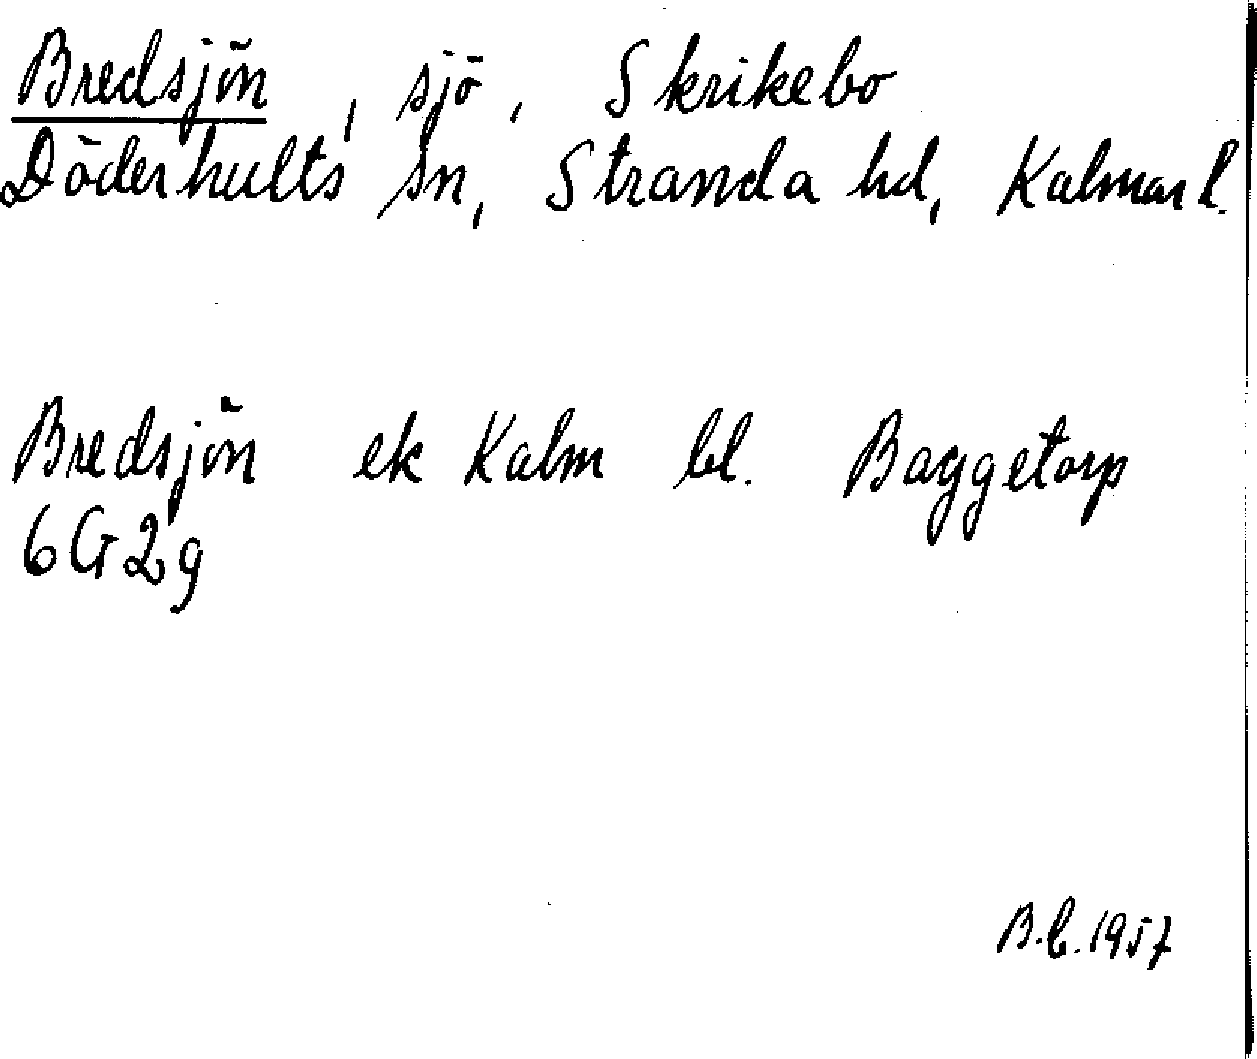 Bredsjön, sjö, Skrikebo
Döderhults sn, Stranda hd, Kalmar l.
Bredsjön ek Kalm bl. Baggetorp
6G2g
B.C. 1957